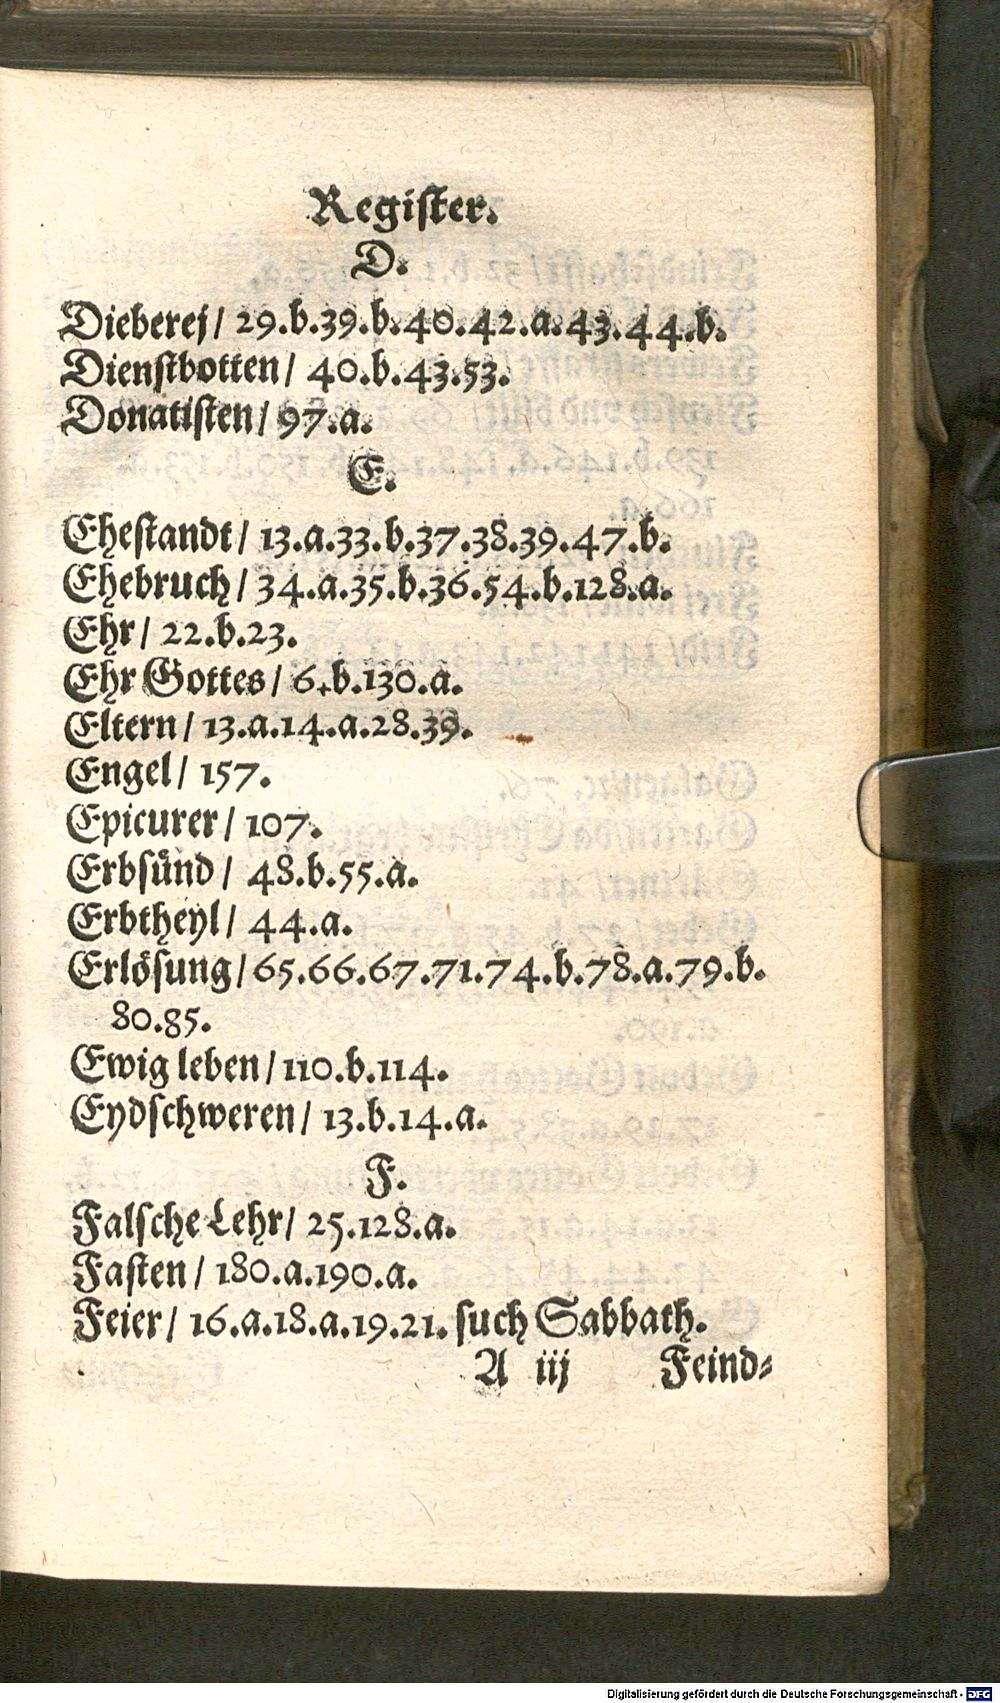 Register.
D.
Dieberej / 29.b.39.b.40.42.a.43.44.b.
Dienstbotten / 40.b.43.53.
Donatisten / 97.a.
E.
Ehestandt / 13.a.33.b.37.38.39.47.b.
Ehebruch / 34.a.35.b.36.54.b.128.a.
Ehr / 22.b.23.
Ehr Gottes / 6.b.130.a.
Eltern / 13.a.14.a.28.39.
Engel / 157.
Epicurer / 107.
Erbsünd / 48.b.55.a.
Erbtheyl / 44.a.
Erlösung / 65.66.67.71.74.b.78.a.79.b.
80.85.
Ewig leben / 110.b.114.
Eydschweren / 13.b.14.a.
F.
Falsche Lehr / 25.128.a.
Fasten / 180.a.190.a.
Feier / 16.a.18.a.19.21. such Sabbath.
A iij Feind⸗
Digitalisierung gefördert durch die Deutsche Forschungsgemeinschaft - DFG